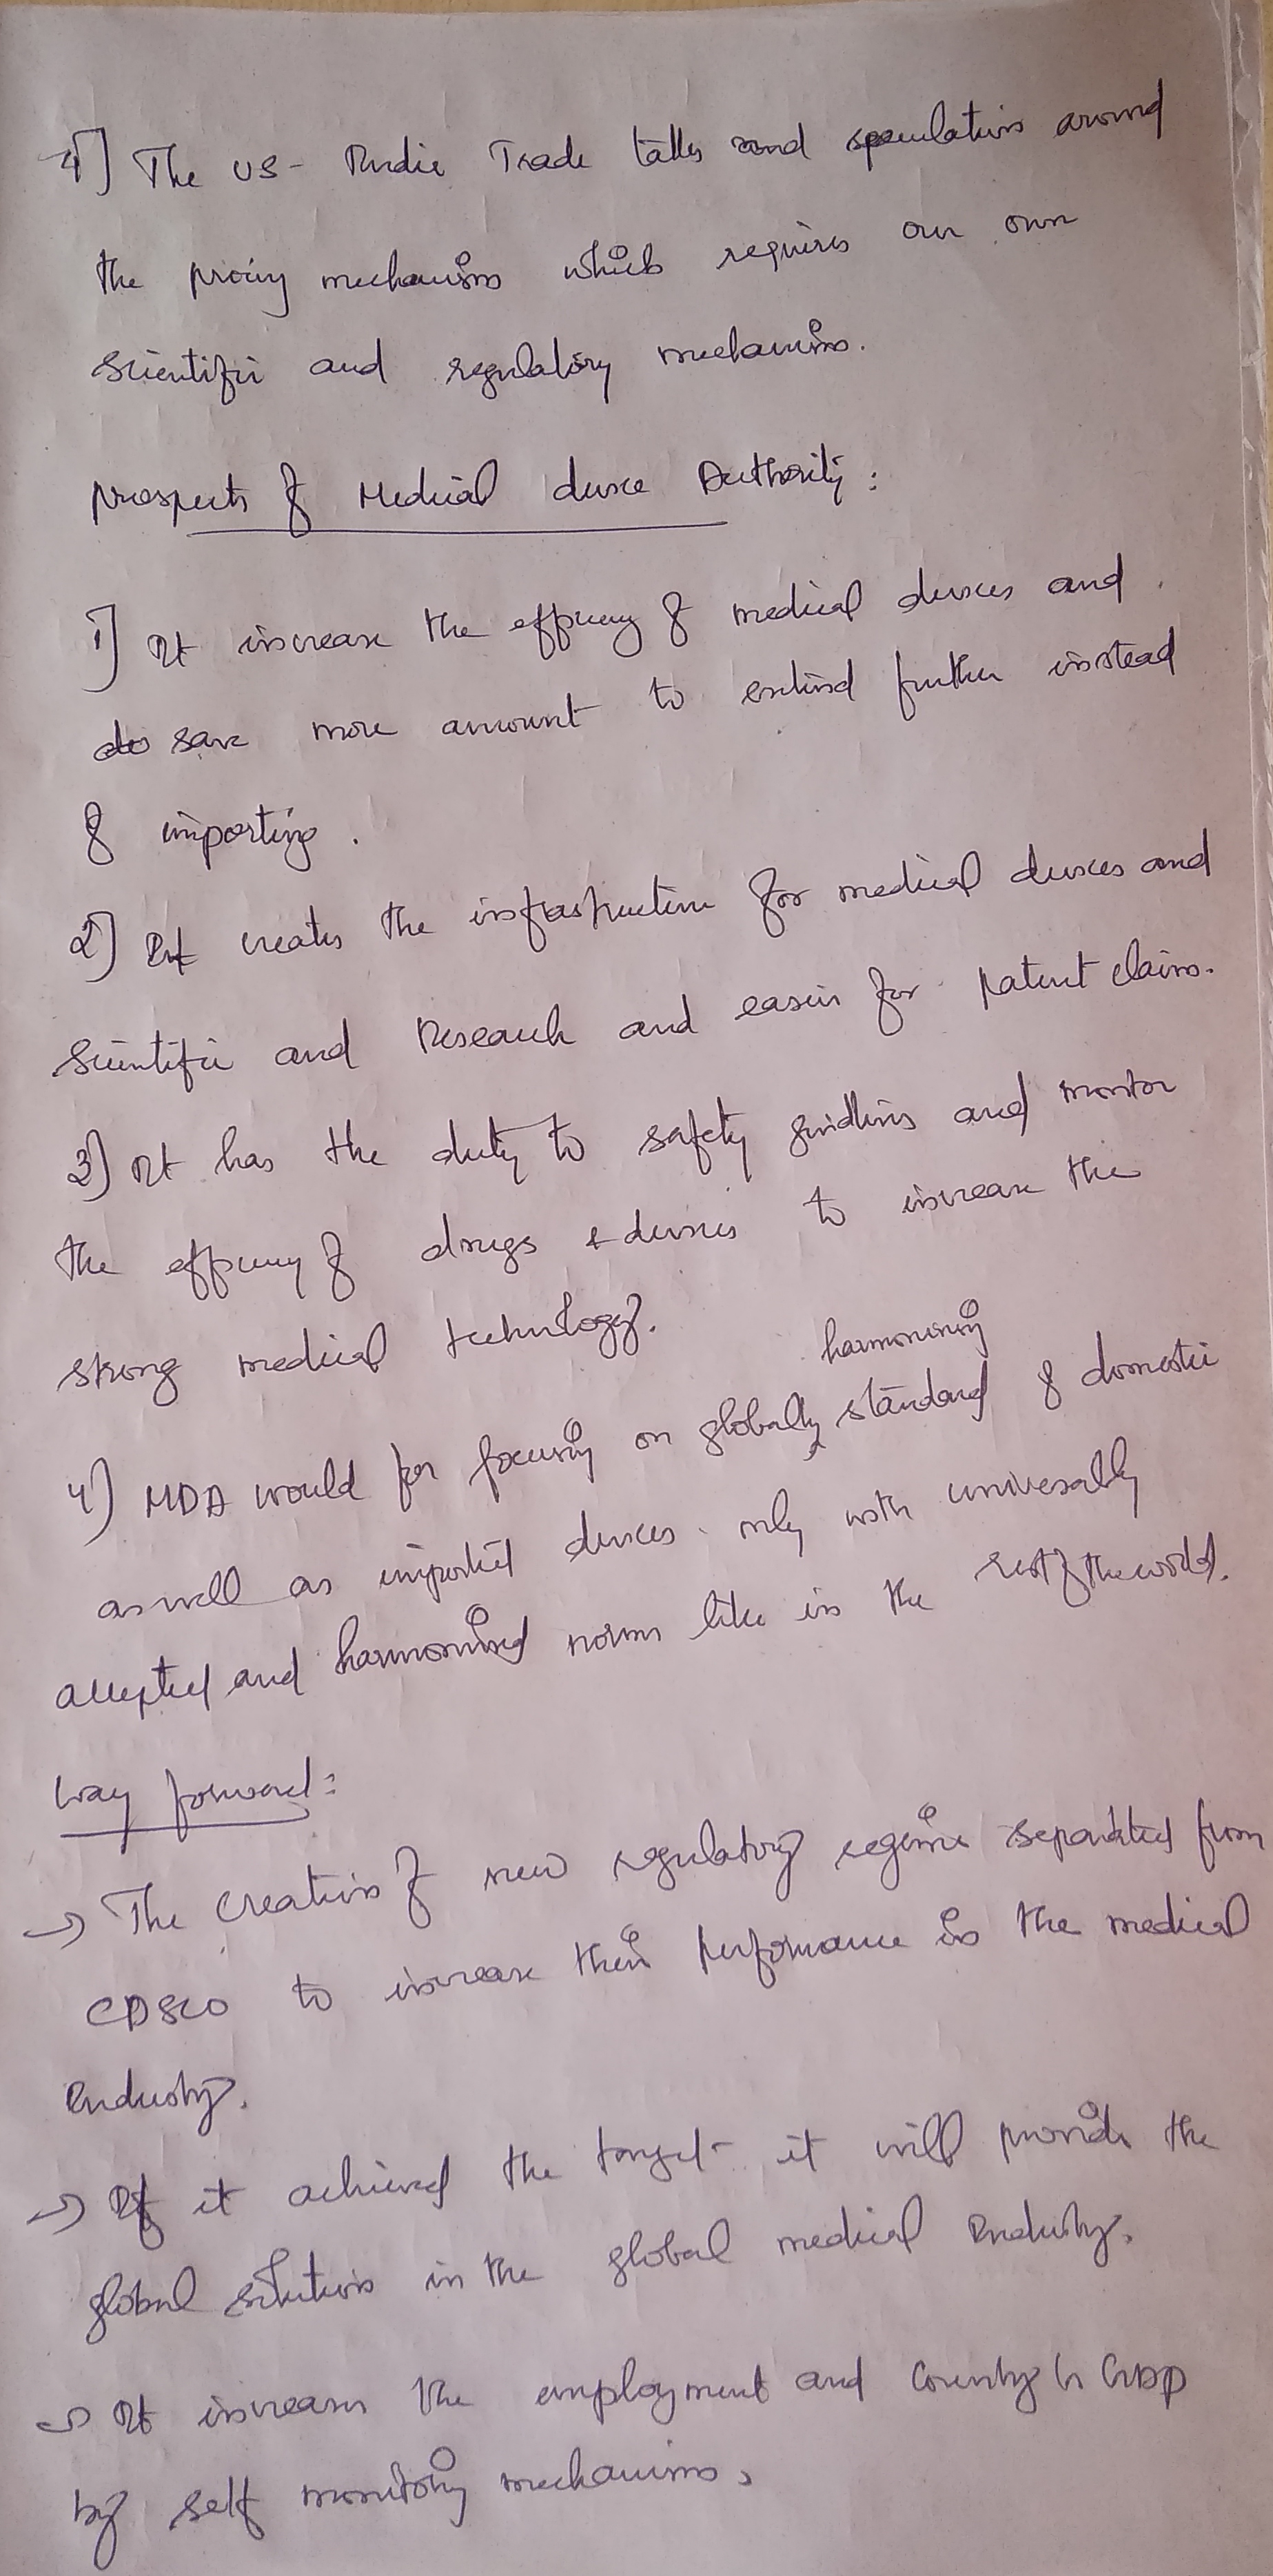 4] The US- India Trade talks and speculations around
the pricing mechanisms which requires our own
scientific and regulatory mechanisms.
Prospects of Medical device Authority:
1] It increase the efficiency of medical devices and
do save more amount to extend further instead
of importing.
2] It creates the infrastructure for medical devices and
scientific and Research and easier for patent claims.
3) It has the duty to safety guidelines and monitor
the efficiency of drugs & devices to increase the
strong medical technology.
harmonising
4) MDA would for focusing on globally standard of domestic
as well as imported devices only with universally
accepted and harmonised norms like in the rest of the world.
Way forward:
→ The creation of new regulatory regime separated from
CDSCO to increase their performance in the medical
Industry.
→ If it achieved the target it will provide the
global solutions in the global medical Industry.
→ It increases the employment and Country's GDP
by self monitoring mechanisms.